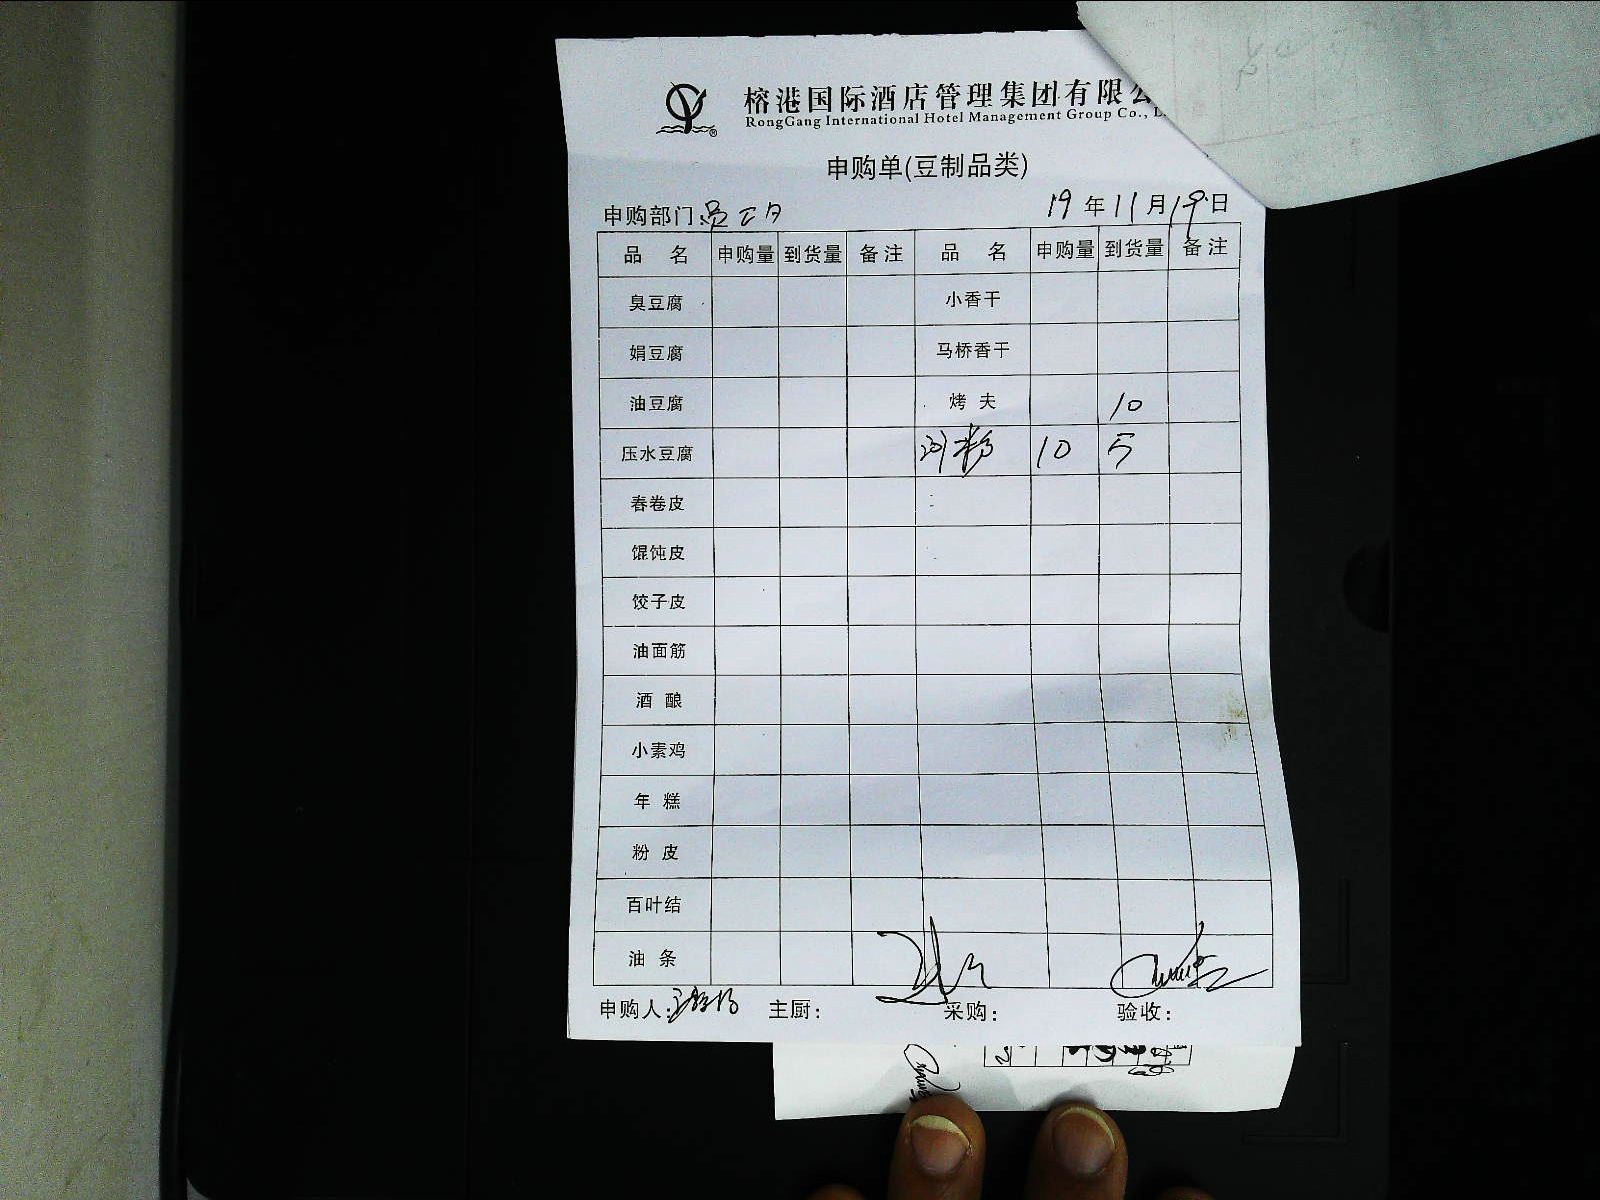 榕港国际酒店管理集团有限公
RongGang International Hotel Management Group Co., L
申购单(豆制品类)
申购部门 19年11月19日
品 名 申购量 到货量 备注 品 名 申购量 到货量 备注
臭豆腐 小香干
娟豆腐 马桥香干
油豆腐 烤 夫 10
压水豆腐 10 5
春卷皮
馄饨皮
饺子皮
油面筋
酒 酿
小素鸡
年 糕
粉 皮
百叶结
油 条
申购人: 主厨: 采购: 验收: